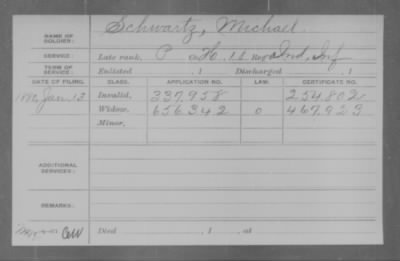 NAME OF SOLDIER: Schwartz, Michael
SERVICE: Late rank, P Co H, 18 Reg't Ind. Inf
TERM OF SERVICE: Enlisted , 1 Discharged , 1
DATE OF FILING. CLASS. APPLICATION NO. LAW. CERTIFICATE NO.
1880, Jan. 13 Invalid, 337,958 254,802
Widow, 656,342 0 467,923
Minor,
ADDITIONAL SERVICES:
REMARKS:
Died , 1 , at